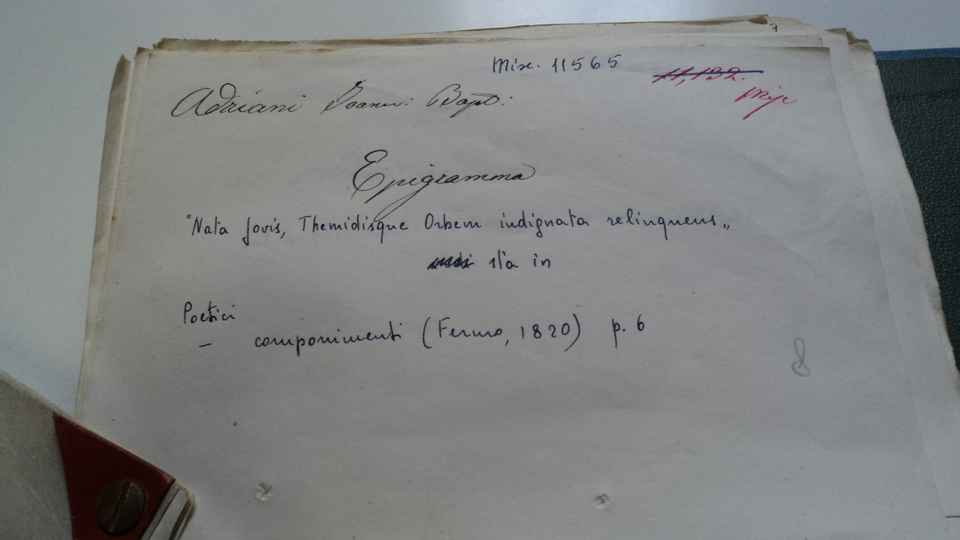 Misc. 11565
11,132.
Misc
Adriani Joann: Bapt:
Epigramma
"Nata Jovis, Themidisque Orbem indignata relinquens„
sta in
Poetici
— componimenti (Fermo, 1820) p. 6
8